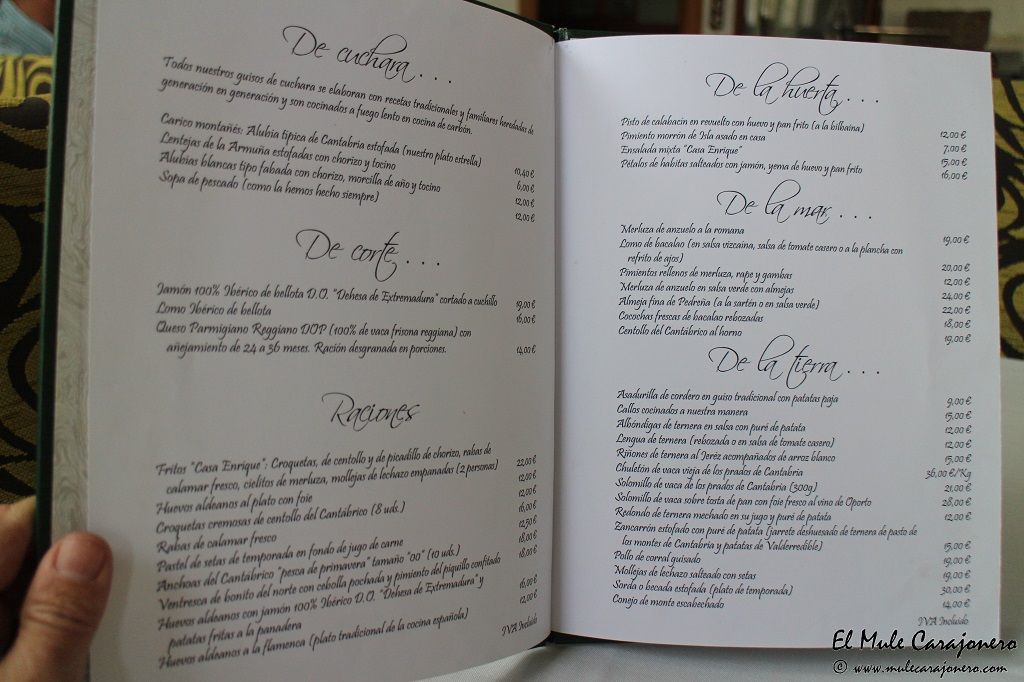 De cuchara . . .
Todos nuestros guisos de cuchara se elaboran con recetas tradicionales y familiares heredadas de
generación en generación y son cocinados a fuego lento en cocina de carbón.
Carico montañés: Alubia típica de Cantabria estofada (nuestro plato estrella) 10,40 €
Lentejas de la Armuña estofadas con chorizo y tocino 6,00 €
Alubias blancas tipo fabada con chorizo, morcilla de año y tocino 12,00 €
Sopa de pescado (como la hemos hecho siempre) 12,00 €
De corte . . .
Jamón 100% Ibérico de bellota D.O. "Dehesa de Extremadura" cortado a cuchillo 19,00 €
Lomo Ibérico de bellota 16,00 €
Queso Parmigiano Reggiano DOP (100% de vaca frisona reggiana) con
añejamiento de 24 a 36 meses. Ración desgranada en porciones. 14,00 €
Raciones
Fritos "Casa Enrique": Croquetas, de centollo y de picadillo de chorizo, rabas de
calamar fresco, cielitos de merluza, mollejas de lechazo empanadas (2 personas) 22,00 €
Huevos aldeanos al plato con foie 12,00 €
Croquetas cremosas de centollo del Cantábrico (8 uds.) 12,00 €
Rabas de calamar fresco 16,00 €
Pastel de setas de temporada en fondo de jugo de carne 12,50 €
Anchoas del Cantábrico "pesca de primavera" tamaño "00" (10 uds.) 18,00 €
Ventresca de bonito del norte con cebolla pochada y pimiento del piquillo confitado 18,00 €
Huevos aldeanos con jamón 100% Ibérico D.O. "Dehesa de Extremadura" y
patatas fritas a la panadera 16,00 €
Huevos aldeanos a la flamenca (plato tradicional de la cocina española) 12,00 €
IVA Incluido
De la huerta . . .
Pisto de calabacín en revuelto con huevo y pan frito (a la bilbaína) 12,00 €
Pimiento morrón de Isla asado en casa 7,00 €
Ensalada mixta "Casa Enrique" 15,00 €
Pétalos de habitas salteados con jamón, yema de huevo y pan frito 16,00 €
De la mar . . .
Merluza de anzuelo a la romana 19,00 €
Lomo de bacalao (en salsa vizcaína, salsa de tomate casero o a la plancha con
refrito de ajos) 20,00 €
Pimientos rellenos de merluza, rape y gambas 12,00 €
Merluza de anzuelo en salsa verde con almejas 24,00 €
Almeja fina de Pedreña (a la sartén o en salsa verde) 22,00 €
Cocochas frescas de bacalao rebozadas 18,00 €
Centollo del Cantábrico al horno 19,00 €
De la tierra . . .
Asadurilla de cordero en guiso tradicional con patatas paja 9,00 €
Callos cocinados a nuestra manera 15,00 €
Albóndigas de ternera en salsa con puré de patata 12,00 €
Lengua de ternera (rebozada o en salsa de tomate casero) 12,00 €
Riñones de ternera al Jeréz acompañados de arroz blanco 15,00 €
Chuletón de vaca vieja de los prados de Cantabria 36,00 €/Kg
Solomillo de vaca de los prados de Cantabria (300g) 21,00 €
Solomillo de vaca sobre tosta de pan con foie fresco al vino de Oporto 28,00 €
Redondo de ternera mechado en su jugo y puré de patata 12,00 €
Zancarrón estofado con puré de patata (jarrete deshuesado de ternera de pasto de
los montes de Cantabria y patatas de Valderredible) 15,00 €
Pollo de corral guisado 19,00 €
Mollejas de lechazo salteado con setas 19,00 €
Sorda o becada estofada (plato de temporada) 30,00 €
Conejo de monte escabechado 14,00 €
IVA Incluido
El Mule Carajonero
© www.mulecarajonero.com